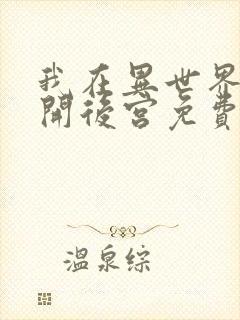 我在異世界
開後宮免費
溫泉綜